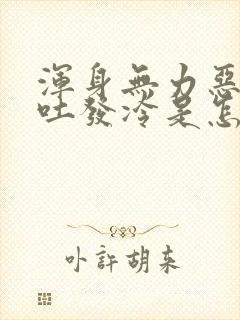 渾身無力惡
吐發冷是怎
卟許胡来